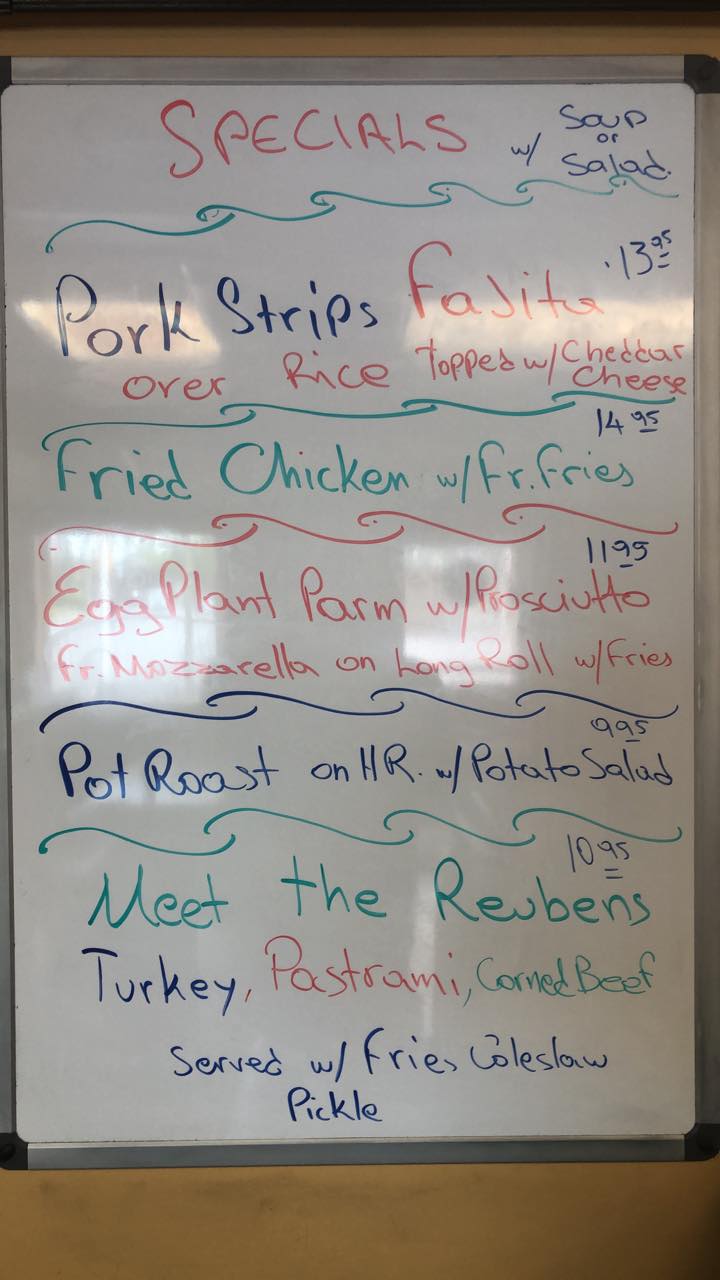 SPECIALS w/ Soup or Salad
13.95
Pork Strips Fajita
over Rice Topped w/ Cheddar Cheese
14.95
Fried Chicken w/ Fr. Fries
11.95
Egg Plant Parm w/ Prosciutto
Fr. Mozzarella on Long Roll w/ Fries
9.95
Pot Roast on HR. w/ Potato Salad
10.95
Meet the Reubens
Turkey, Pastrami, Corned Beef
Served w/ Fries Coleslaw
Pickle